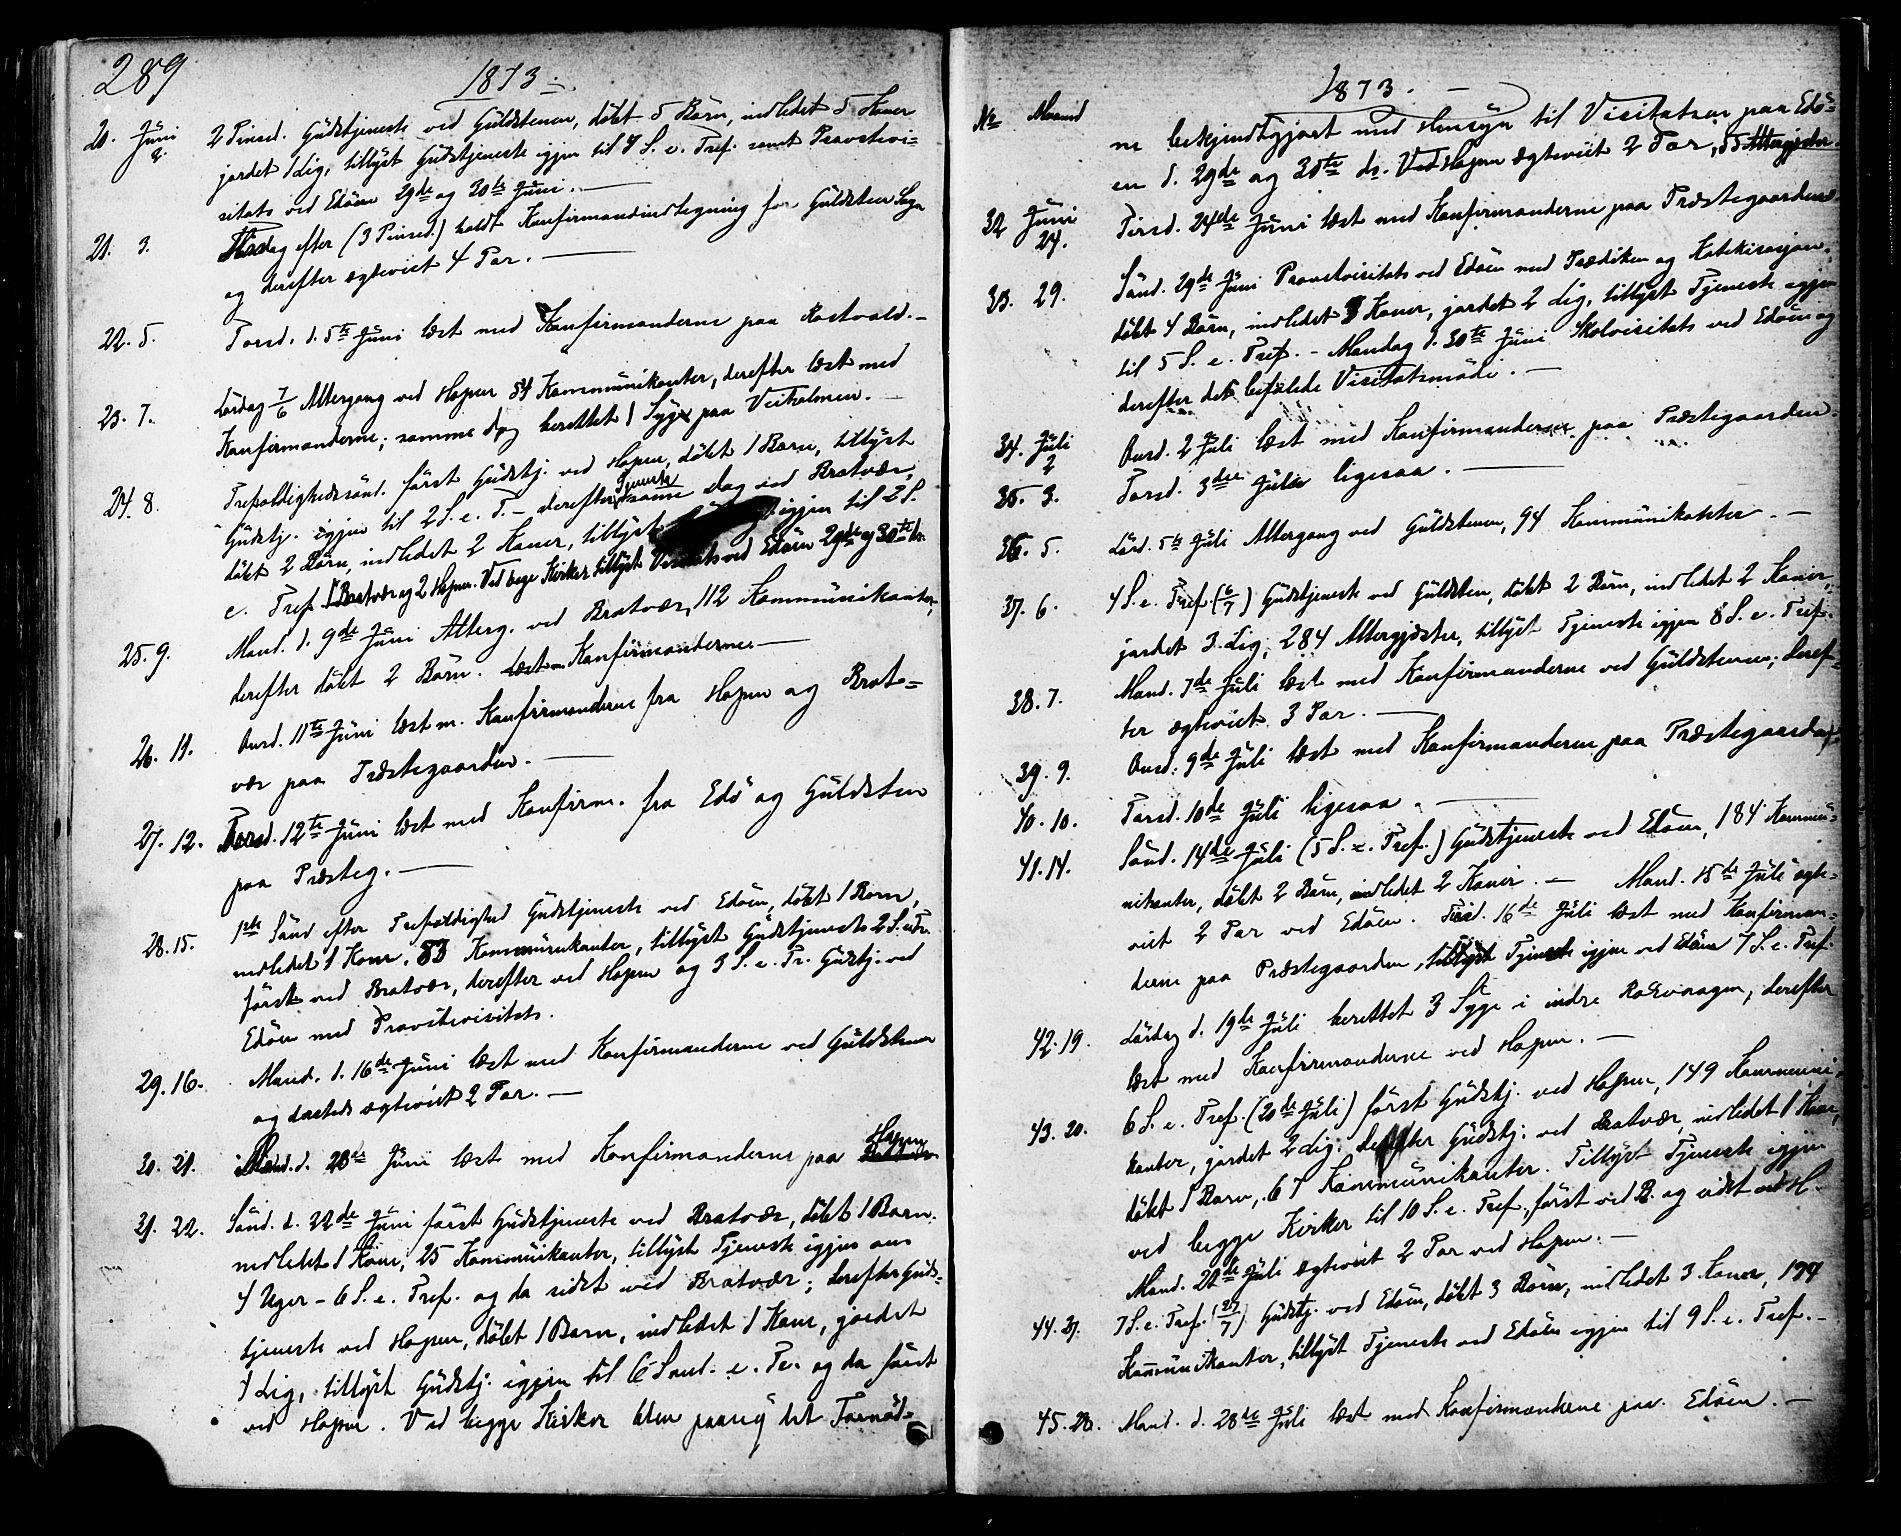 289
1873.
20. Juni 2. 2 Pinsd. Gudstjeneste ved Guldstenen, döbt 5 Börn, indledet 5 Koner
jordet 1 Lig, tillyst Gudstjeneste igjen til 4 S. e. Tref. samt Provstevi-
sitats ved Edöen 29de og 30te Juni. —
21. 3. Tirsdag efter (3 Pinsed.) holdt Konfirmandindtegning for Guldsten Sogn
og derefter ægteviet 4 Par. —
22. 5. Torsd. d. 5te Juni læst med Konfirmanderne paa Rostvold. —
23. 7. Lördag 7/6 Altergang ved Hopen 54 Kommunikanter, derefter læst med
Konfirmanderne; samme Dag berettet 1 Syg paa Veiholmen. —
24. 8. Trefoldighedssönd. först Gudstj. ved Hopen, döbt 1 Barn, tillyst
Gudstj. igjen til 2 S. e. T. – derefter Tjeneste samme Dag ved Bratvær,
döbt 2 Börn, indledet 2 Koner, tillyst igjen til 2 S.
e. Tref. 1 Bratvær og 2 Hopen. Ved begge Kirker tillyst Visitats ved Edöen 29de og 30te ds.
25. 9. Mand. d. 9de Juni Alterg. ved Bratvær, 112 Kommunikanter,
derefter döbt 2 Börn. læst m. Konfirmanderne —
26. 11. Onsd. 11te Juni læst m. Konfirmanderne fra Hopen og Brat-
vær paa Præstegaarden. —
27. 12. Torsd. 12te Juni læst med Konfirm. fra Edö og Guldsten
paa Præsteg. —
28. 15. 1ste Sönd efter Trefoldighed Gudstjeneste ved Edöen, döbt 1 Barn,
indledet 1 Kone, 83 Kommunikanter, tillyst Gudstjeneste 2 S. e. Tr.
först ved Bratvær, derefter ved Hopen og 3 S. e. Tr. Gudstj. ved
Edöen med Provstevisitats.
29. 16. Mand. d. 16de Juni læst med Konfirmanderne ved Guldstenen
og sammesteds ægteviet 2 Par. —
30. 21. d. Juni læst med Konfirmanderne paa Hopen
31. 22. Sönd. d. 22de Juni först Gudstjeneste ved Bratvær, döbt 1 Barn,
indledet 1 Kone, 25 Kommunikanter, tillyst Tjeneste igjen om
4 Uger – 6 S. e. Tref. og da sidst ved Bratvær; derefter Guds-
tjeneste ved Hopen, döbt 1 Barn, indledet 1 Kone, jordet
1 Lig, tillyst Gudstj. igjen til 6 Sönd. e. Tr. og da först
ved Hopen. Ved begge Kirker blev paany det Fornöd-
1873. —
No Maaned
ne bekjendtgjort med Hensyn til Visitatsen paa Edö-
en d. 29de og 30te ds. Ved Hopen ægteviet 2 Par, 55 Altergjester.
32 Juni 24. Tirsd. 24de Juni læst med Konfirmanderne paa Præstegaarden.
33. 29. Sönd. 29de Juni Provstvisitats ved Edöen med Prædiken og Katekisasjon,
döbt 4 Börn, indledet 3 Koner, jordet 2 Lig, tillyst Tjeneste igjen
til 5 S. e. Tref. – Mandag d. 30te Juni Skolevisitats ved Edöen og
derefter det befalede Visitatsmöde. —
34. Juli 2 Onsd. 2 Juli læst med Konfirmanderne paa Præstegaarden.
35. 3. Torsd. 3die Juli ligesaa. —
36. 5. Lörd. 5te Juli Altergang ved Guldstenen, 94 Kommunikanter. —
37. 6. 4 S. e. Tref. (6/7) Gudstjeneste ved Guldsten, döbt 2 Börn, indledet 2 Koner,
jordet 3 Lig, 284 Altergjester, tillyst Tjeneste igjen 8 S. e. Tref.
38. 7. Mand. 7de Juli læst med Konfirmanderne ved Guldstenen; deref-
ter ægteviet 3 Par. —
39. 9. Onsd. 9de Juli læst med Konfirmanderne paa Præstegaarden.
40. 10. Torsd. 10de Juli ligesaa. —
41. 14. Sönd. 14de Juli (5 S. e. Tref.) Gudstjeneste ved Edöen, 184 Kommu-
nikanter, döbt 2 Börn, indledet 2 Koner. — Mand. 15de Juli ægte-
viet 2 Par ved Edöen. Tirsd. 16de Juli læst med Konfirman-
derne paa Præstegaarden, tillyst Tjeneste igjen ved Edöen 7 S. e. Tref.
42. 19. Lördag d. 19de Juli berettet 3 Syge i indre Roksvaagen, derefter
læst med Konfirmanderne ved Hopen. —
43. 20. 6 S. e. Tref. (20de Juli) först Gudstj. ved Hopen, 149 Kommuni-
kanter, jordet 2 Lig; derefter Gudstj. ved Bratvær, indledet 1 Kone,
döbt 1 Barn, 67 Kommunikanter. Tillyst Tjeneste igjen
ved begge Kirker til 10 S. e. Tref., först ved B. og sidst ved H.
Mand. 21de Juli ægteviet 2 Par ved Hopen. —
44. 27. 7 S. e. Tref. (27/7) Gudstj. ved Edöen, döbt 3 Börn, indledet 3 Koner,
Kommunikanter, tillyst Tjeneste ved Edöen igjen til 9 S. e. Tref. —
45. 28. Mand. d. 28de Juli læst med Konfirmanderne paa Edöen. —